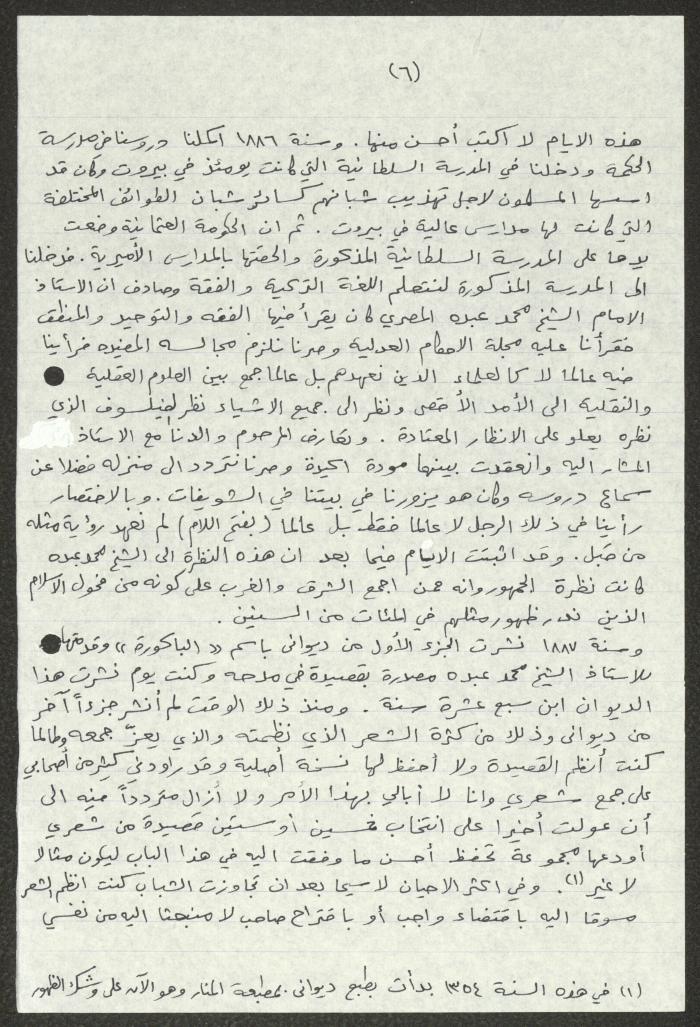 (٦)
هذه الايام لا اكتب أحسن منها. وسنة ١٨٨٦ اكملنا دروسنا في مدرسة
الحكمة ودخلنا في المدرسة السلطانية التي كانت يومئذ في بيروت وكان قد
اسسها المسلمون لاجل تهذيب شبانهم كسائر شبان الطوائف المختلفة
التي كانت لها مدارس عالية في بيروت. ثم ان الحكومة العثمانية وضعت
يدها على المدرسة السلطانية المذكورة والحقتها بالمدارس الأميرية. فدخلنا
الى المدرسة المذكورة لنتعلم اللغة التركية والفقة وصادف ان الاستاذ
الامام الشيخ محمد عبده المصري كان يقرأ فيها الفقه والتوحيد والمنطق
فقرأنا عليه مجلة الاحكام العدلية وصرنا نلزم مجالسه المفيده فرأينا
فيه عالما لا كالعلماء الذين نعهدهم بل عالما جمع بين العلوم العقلية
والنقلية الى الأمد الأقصى ونظر الى جميع الاشياء نظر الفيلسوف الذي
نظره يعلو على الانظار المعتادة. وتعارف المرحوم والدنا مع الاستاذ
المشار اليه وانعقدت بينهما مودة اكيدة وصرنا نتردد الى منزله فضلا عن
سماع دروسه وكان هو يزورنا في بيتنا في الشويفات. وبالاختصار
رأينا في ذلك الرجل لا عالما فقط بل عالما (بفتح اللام) لم نعهد رؤية مثله
من قبل. وقد اثبتت الايام فيما بعد ان هذه النظرة الى الشيخ محمد عبده
كانت نظرة الجمهور وانه ممن اجمع الشرق والغرب على كونه من فحول الاسلام
الذين ندر ظهور مثلهم في المئات من السنين.
وسنة ١٨٨٧ نشرت الجزء الأول من ديواني باسم «الباكورة» وقدمتها
للاستاذ الشيخ محمد عبده مصدرة بقصيدة في مدحه وكنت يوم نشرت هذا
الديوان ابن سبع عشرة سنة. ومنذ ذلك الوقت لم أنشر جزءاً آخر
من ديواني وذلك من كثرة الشعر الذي نظمته والذي يعزّ جمعه وطالما
كنت أنظم القصيدة ولا احفظ لها نسخة أصلية وقد راودني كثير من أصحابي
على جمع شعري وانا لا أبالي بهذا الأمر ولا أزال متردداً فيه الى
أن عولت أخيرا على انتخاب خمسين أو ستين قصيدة من شعري
أودعها مجموعة تحفظ أحسن ما وفقت اليه في هذا الباب ليكون مثالا
لا غير (١). وفي اكثر الاحيان لاسيما بعد ان تجاوزت الشباب كنت انظم الشعر
مسوقا اليه باقتضاء واجب أو باقتراح صاحب لا منبعثا اليه من نفسي
(١) في هذه السنة ١٣٥٤ بدأت بطبع ديواني بمطبعة المنار وهو الآن على وشك الظهور